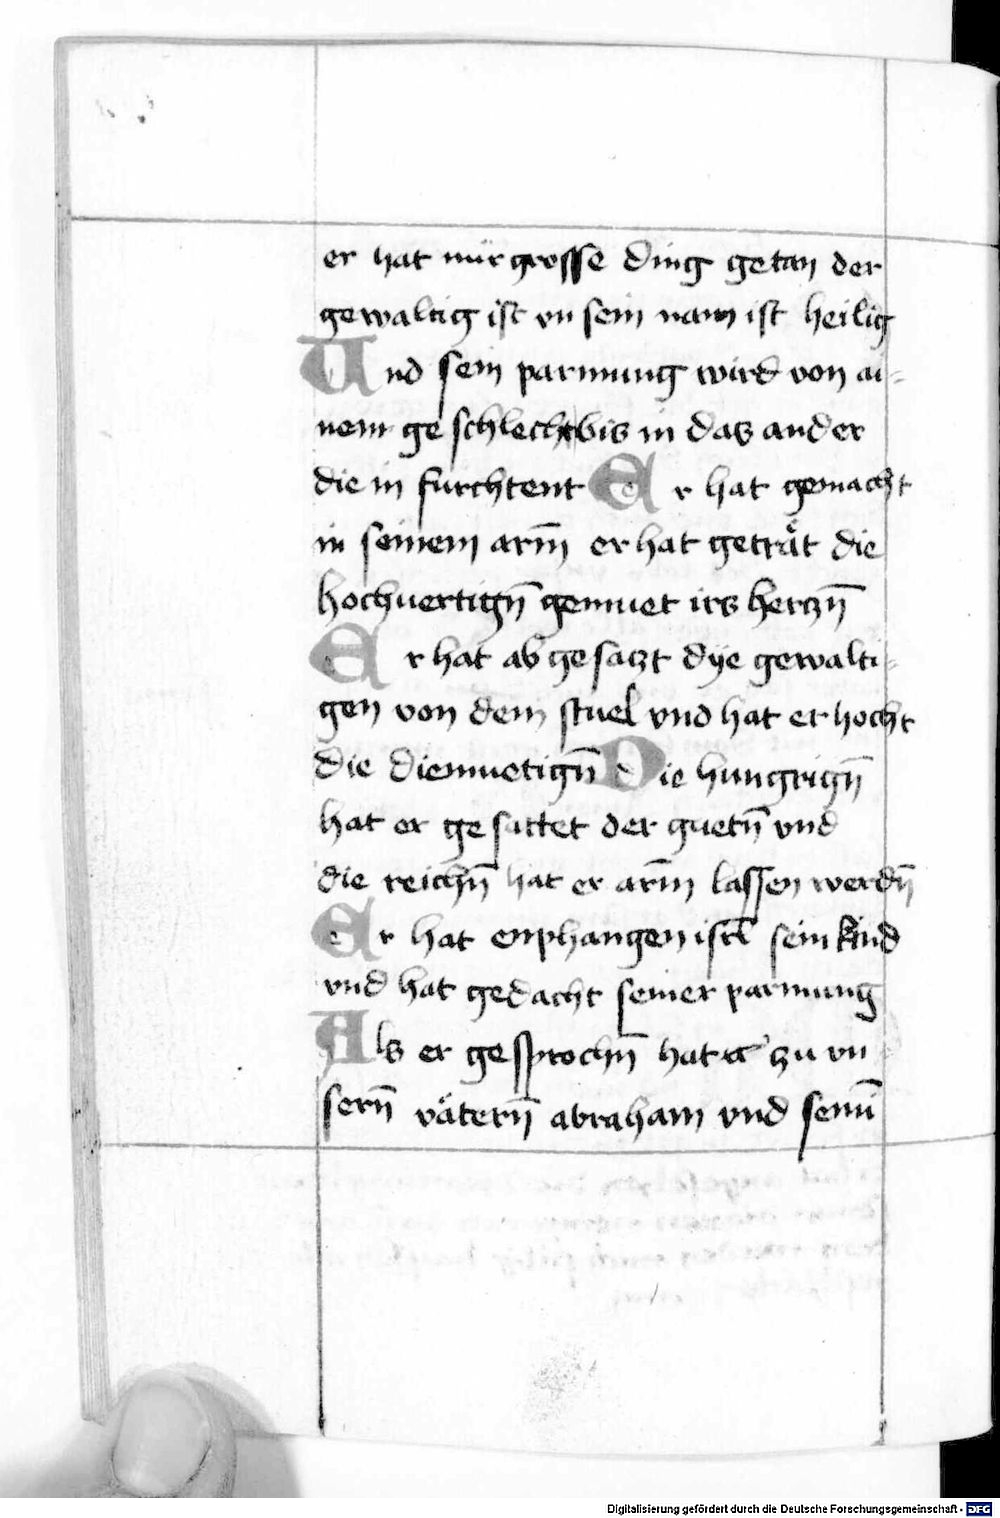 er hat mir grosse ding getan der
gewaltig ist vn sein nam ist heilig
Und sein parmung wird von ai-
nem geschlecht bis in das ander
die in furchtent Er hat gemacht
in seinem arm̄ er hat geträt die
hochuertign̄ gemuet irs herczn̄
Er hat ab gesaczt dye gewalti-
gen von dem stuel vnd hat erhocht
die diemuetign̄ Die hungrign̄
hat er gesattet der guetn̄ vnd
die reichn̄ hat er arm̄ lassen werdn̄
Er hat enphangen isrl̄ sein kind
vnd hat gedacht seiner parmung
Als er gesprochn̄ hat zu vn
sern̄ vätern̄ abraham vnd seinē
Digitalisierung gefördert durch die Deutsche Forschungsgemeinschaft - DFG